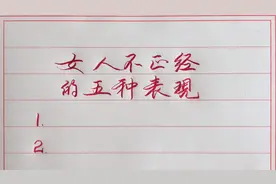 女人不正经
的五种表现
1.
2